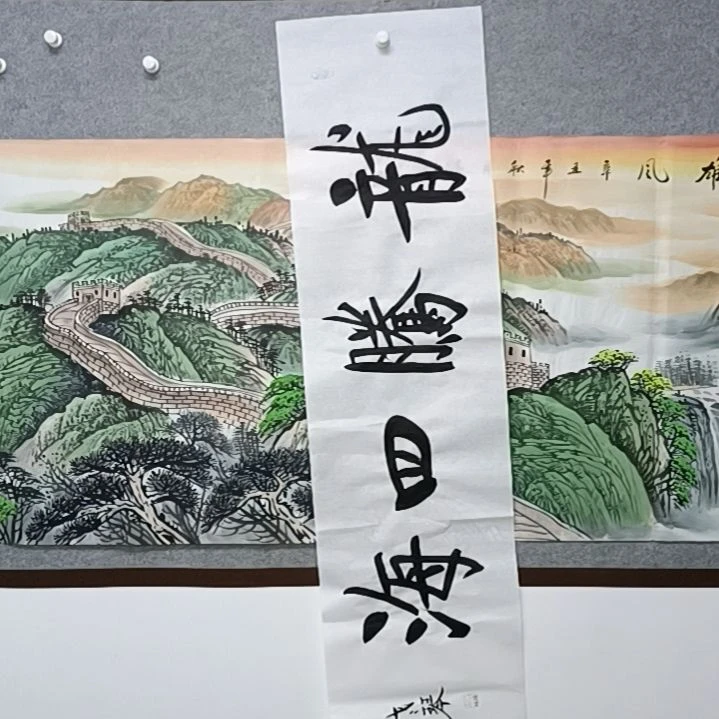 龍騰四海
雄风
辛丑年秋